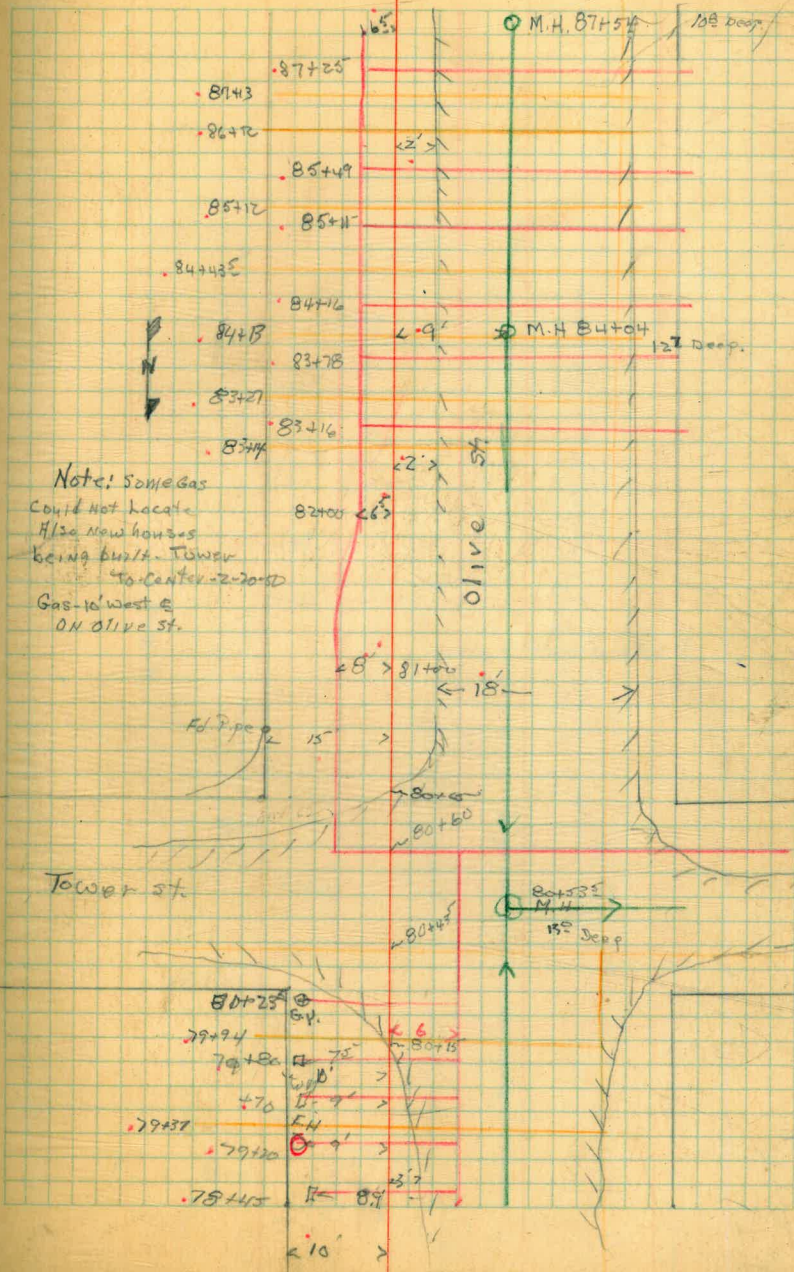 6⁵
M.H. 87+54
10⁰ Deep.
87+25
87+13
86+72
2'
85+49
85+12
85+11
84+43⁵
84+16
84+13
9'
M.H 84+04
12⁷ Deep.
N
83+78
83+27
83+16
83+14
2'
Olive St.
Note: Some Gas
Could Not Locate
Also New houses
being built - Tower
To-Center-2-20-50
Gas-10' West ℄
ON Olive St.
82+00
6⁵
8'
81+00
18'
Fd. Pipe
15'
80+60
Tower St.
80+53⁵
M.H.
13⁰ Deep
80+4⁵
80+23⁵
G.V.
79+94
6
80+15
79+80
7⁵
10'
+70
9'
79+37
F.H
79+20
9'
3'
78+45
8⁹'
10'